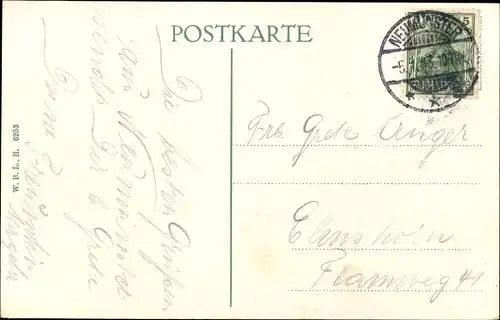 POSTKARTE
NEUMÜNSTER
5
Die besten Grüßen
aus Neumünster
sendet Dir l. Grete
Deine Freundin
Frl. Grete Anger
Elmshorn
Flamweg 41
W. B. L., H. 6253